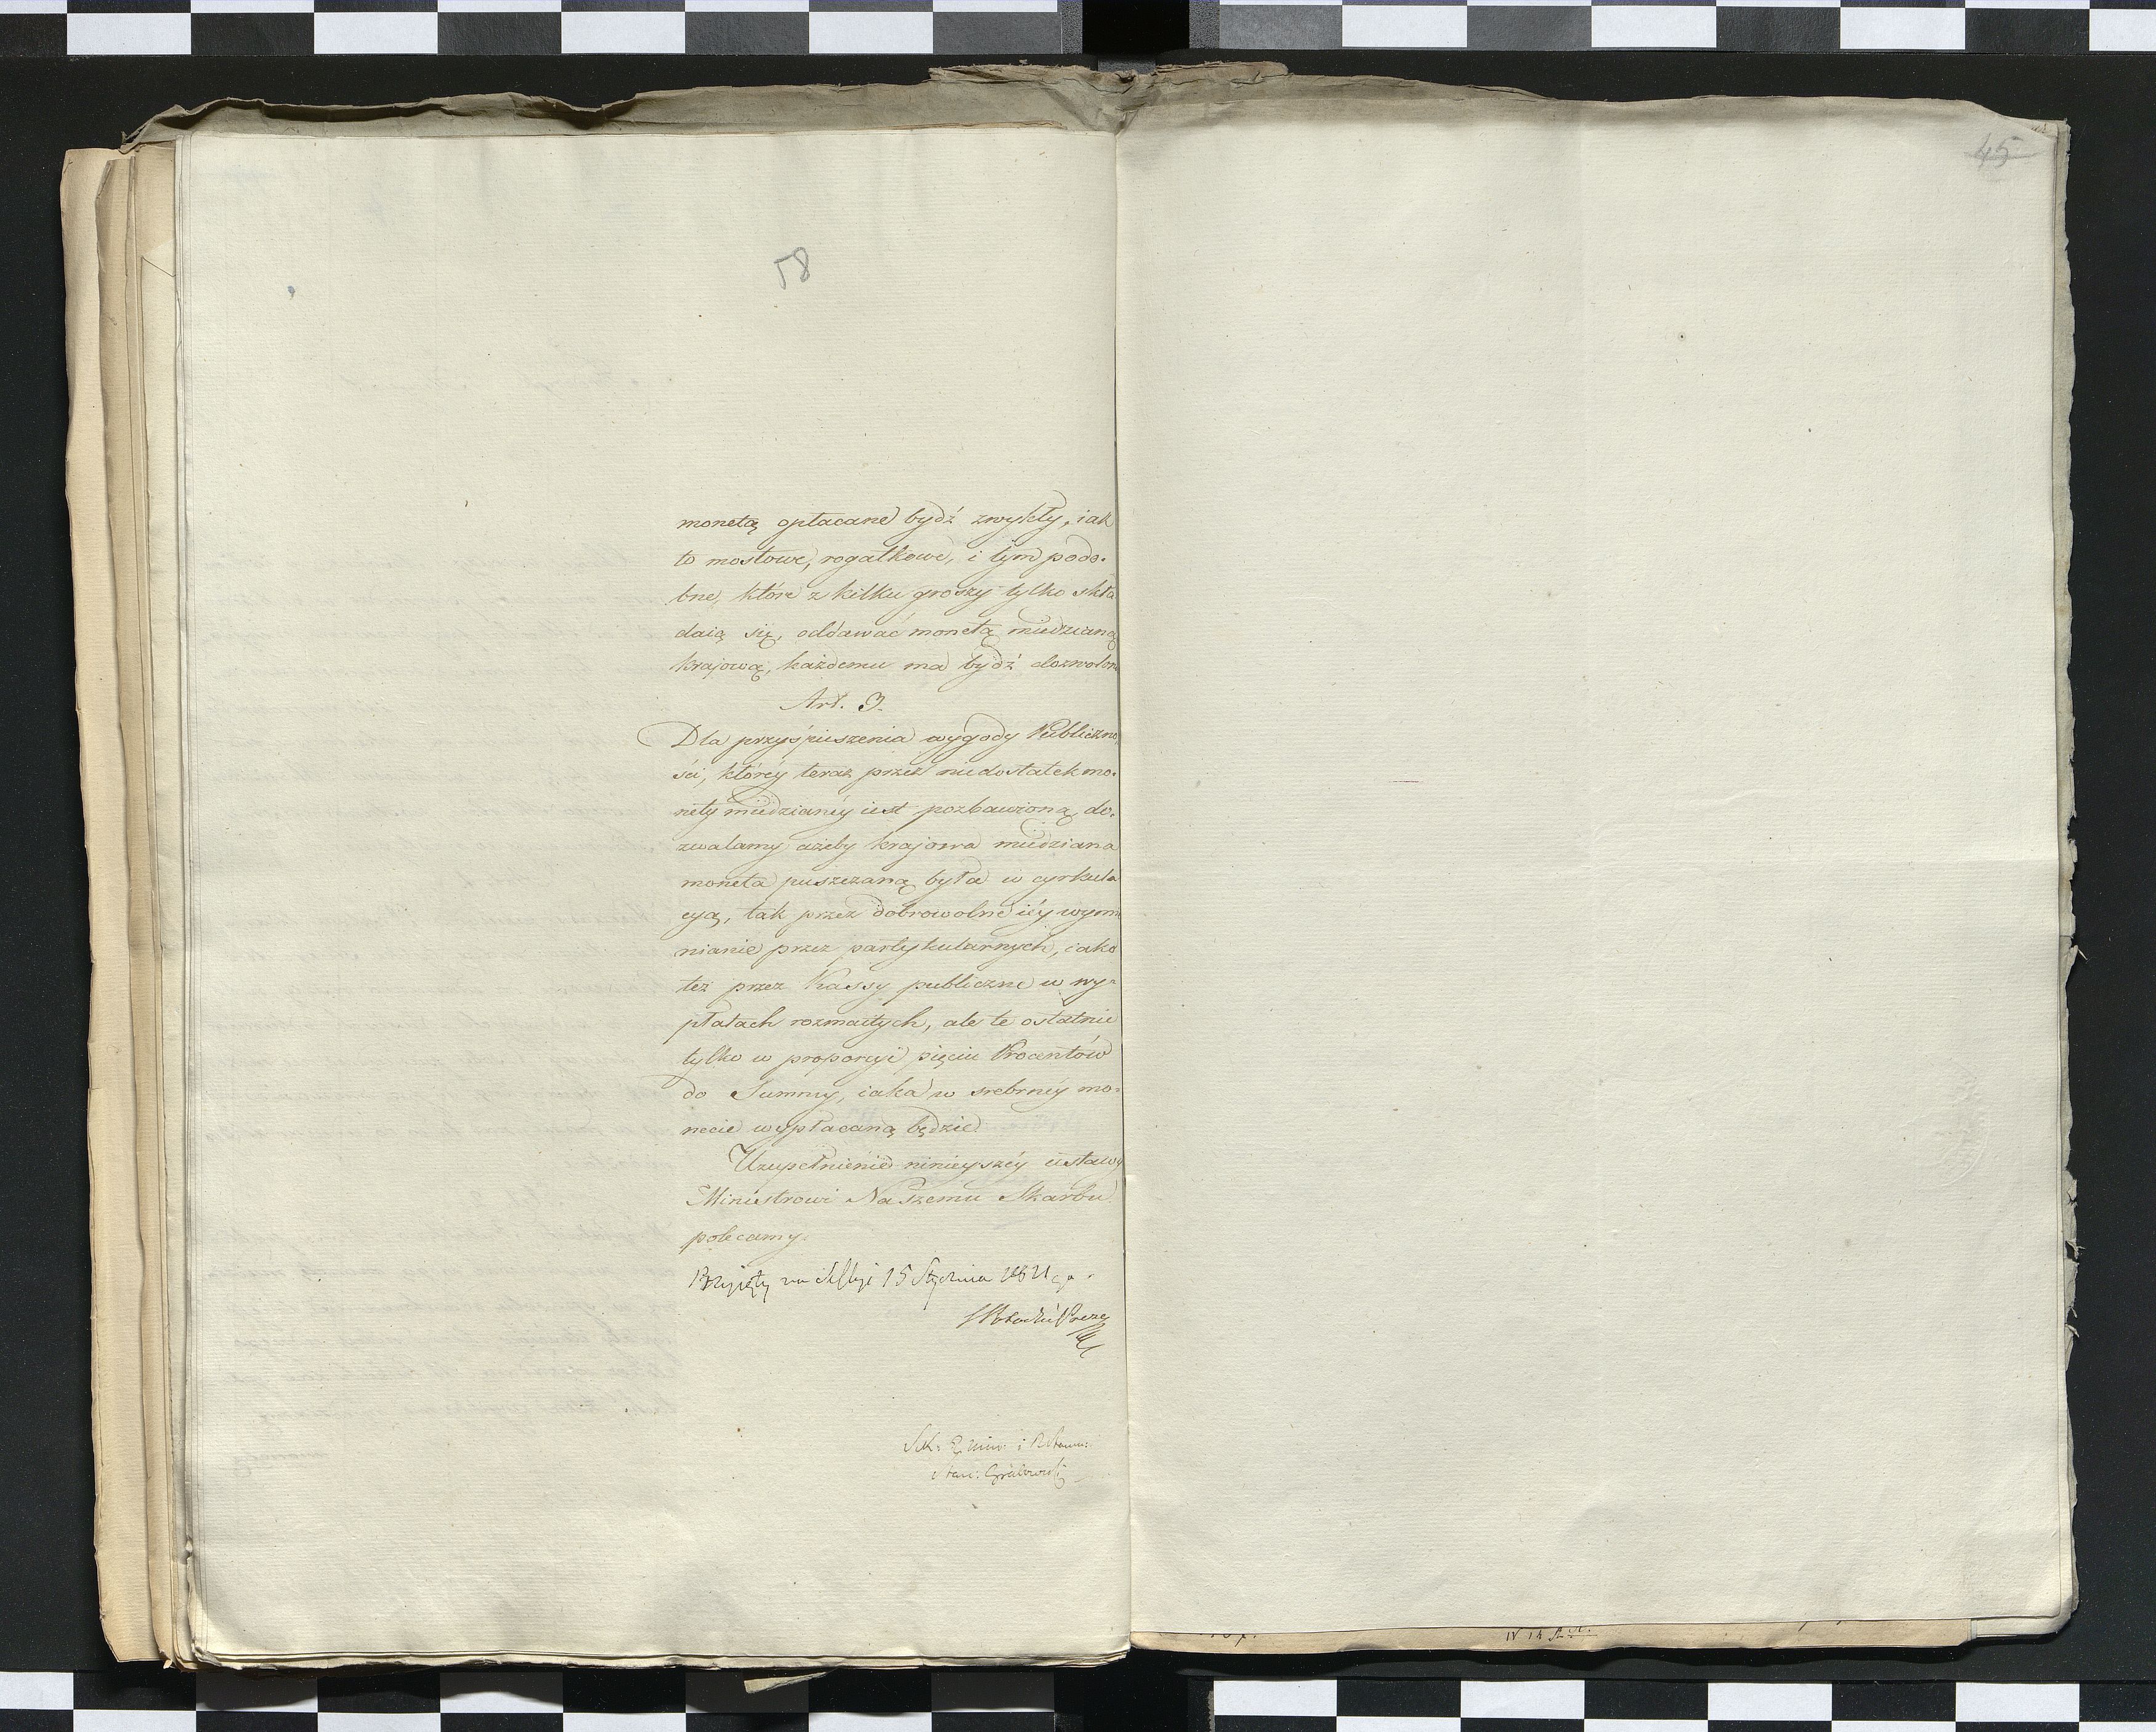 45
58
monetą opłacane bydź zwykły, iak
to mostowe, rogatkowe, i tym podo-
bne, które z kilku groszy tylko skła
daią się, oddawać monetą miedzianą
krajową, każdemu ma bydź dozwolon
Art. 3.
Dla przyśpieszenia wygody Publiczno
ści, któréy teraz przez niedostatek mo-
nety miedzianéy iest pozbawioną, do-
zwalamy ażeby krajowa miedziana
moneta puszczaną była w cyrkula
cyą, tak przez dobrowolne iéy wymie
nianie przez partykularnych, iako
też przez Kassy publiczne w wy-
płatach rozmaitych, ale te ostatnie
tylko w proporcyi pięciu Procentów
do Summy, iaka w srebrnéy mo-
necie wypłacaną będzie
Uzupełnienie ninieyszéy ustawy
Ministrowi Naszemu Skarbu
polecamy.
Przyięty na 15 Stycznia 1821 go.
Sek:
Stan: Grabowski